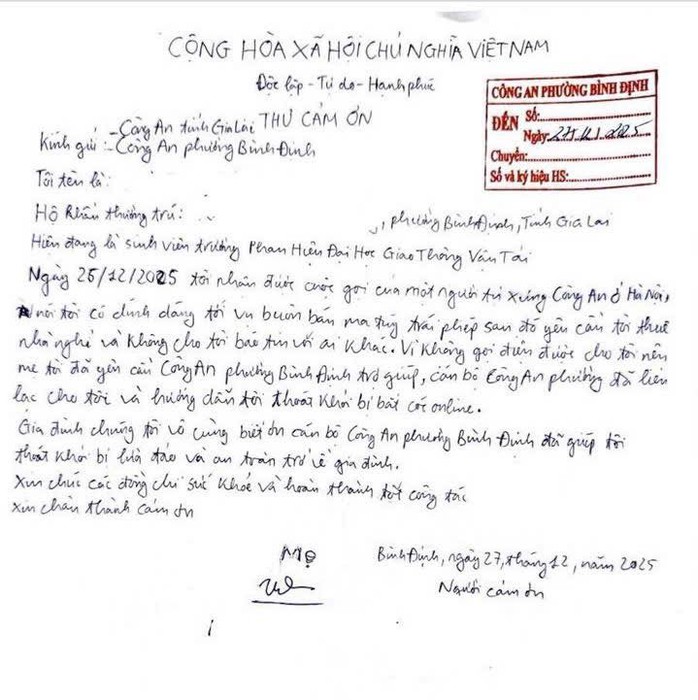 CỘNG HÒA XÃ HỘI CHỦ NGHĨA VIỆT NAM
Độc lập - Tự do - Hạnh phúc
THƯ CẢM ƠN
CÔNG AN PHƯỜNG BÌNH ĐỊNH
ĐẾN Số:
Ngày 27/12/2025
Chuyển:
Số và ký hiệu HS:
Kính gửi: - Công An tỉnh Gia Lai
- Công An phường Bình Định
Tôi tên là:
Hộ khẩu thường trú: , phường Bình Định, Tỉnh Gia Lai
Hiện đang là sinh viên trường Phân Hiệu Đại Học Giao Thông Vận Tải
Ngày 25/12/2025 tôi nhận được cuộc gọi của một người tự xưng Công An ở Hà Nội,
nói tôi có dính dáng tới vụ buôn bán ma túy trái phép sau đó yêu cầu tôi thuê
nhà nghỉ và không cho tôi báo tin với ai khác. Vì không gọi điện được cho tôi nên
mẹ tôi đã yêu cầu Công An phường Bình Định trợ giúp, cán bộ Công An phường đã liên
lạc cho tôi và hướng dẫn tôi thoát khỏi bị bắt cóc online.
Gia đình chúng tôi vô cùng biết ơn cán bộ Công An phường Bình Định đã giúp tôi
thoát khỏi bị lừa đảo và an toàn trở về gia đình.
Xin chúc các đồng chí sức khoẻ và hoàn thành tốt công tác
Xin chân thành cảm ơn
Mẹ
Bình Định, ngày 27, tháng 12, năm 2025
Người cảm ơn